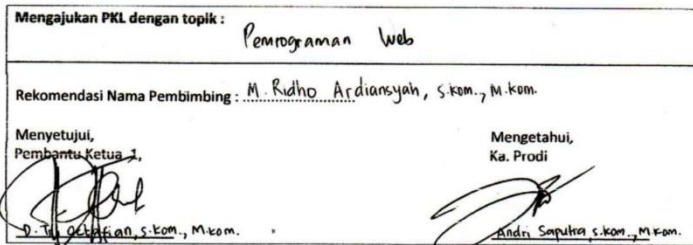 Mengajukan PKL dengan topik :
Pemrograman Web
Rekomendasi Nama Pembimbing : M. Ridho Ardiansyah, S.kom., M.kom.
Menyetujui,
Pembantu Ketua 1,
Mengetahui,
Ka. Prodi
D. Tri Octafian, S.kom., M.kom.
Andri Saputra, S.kom., M.kom.